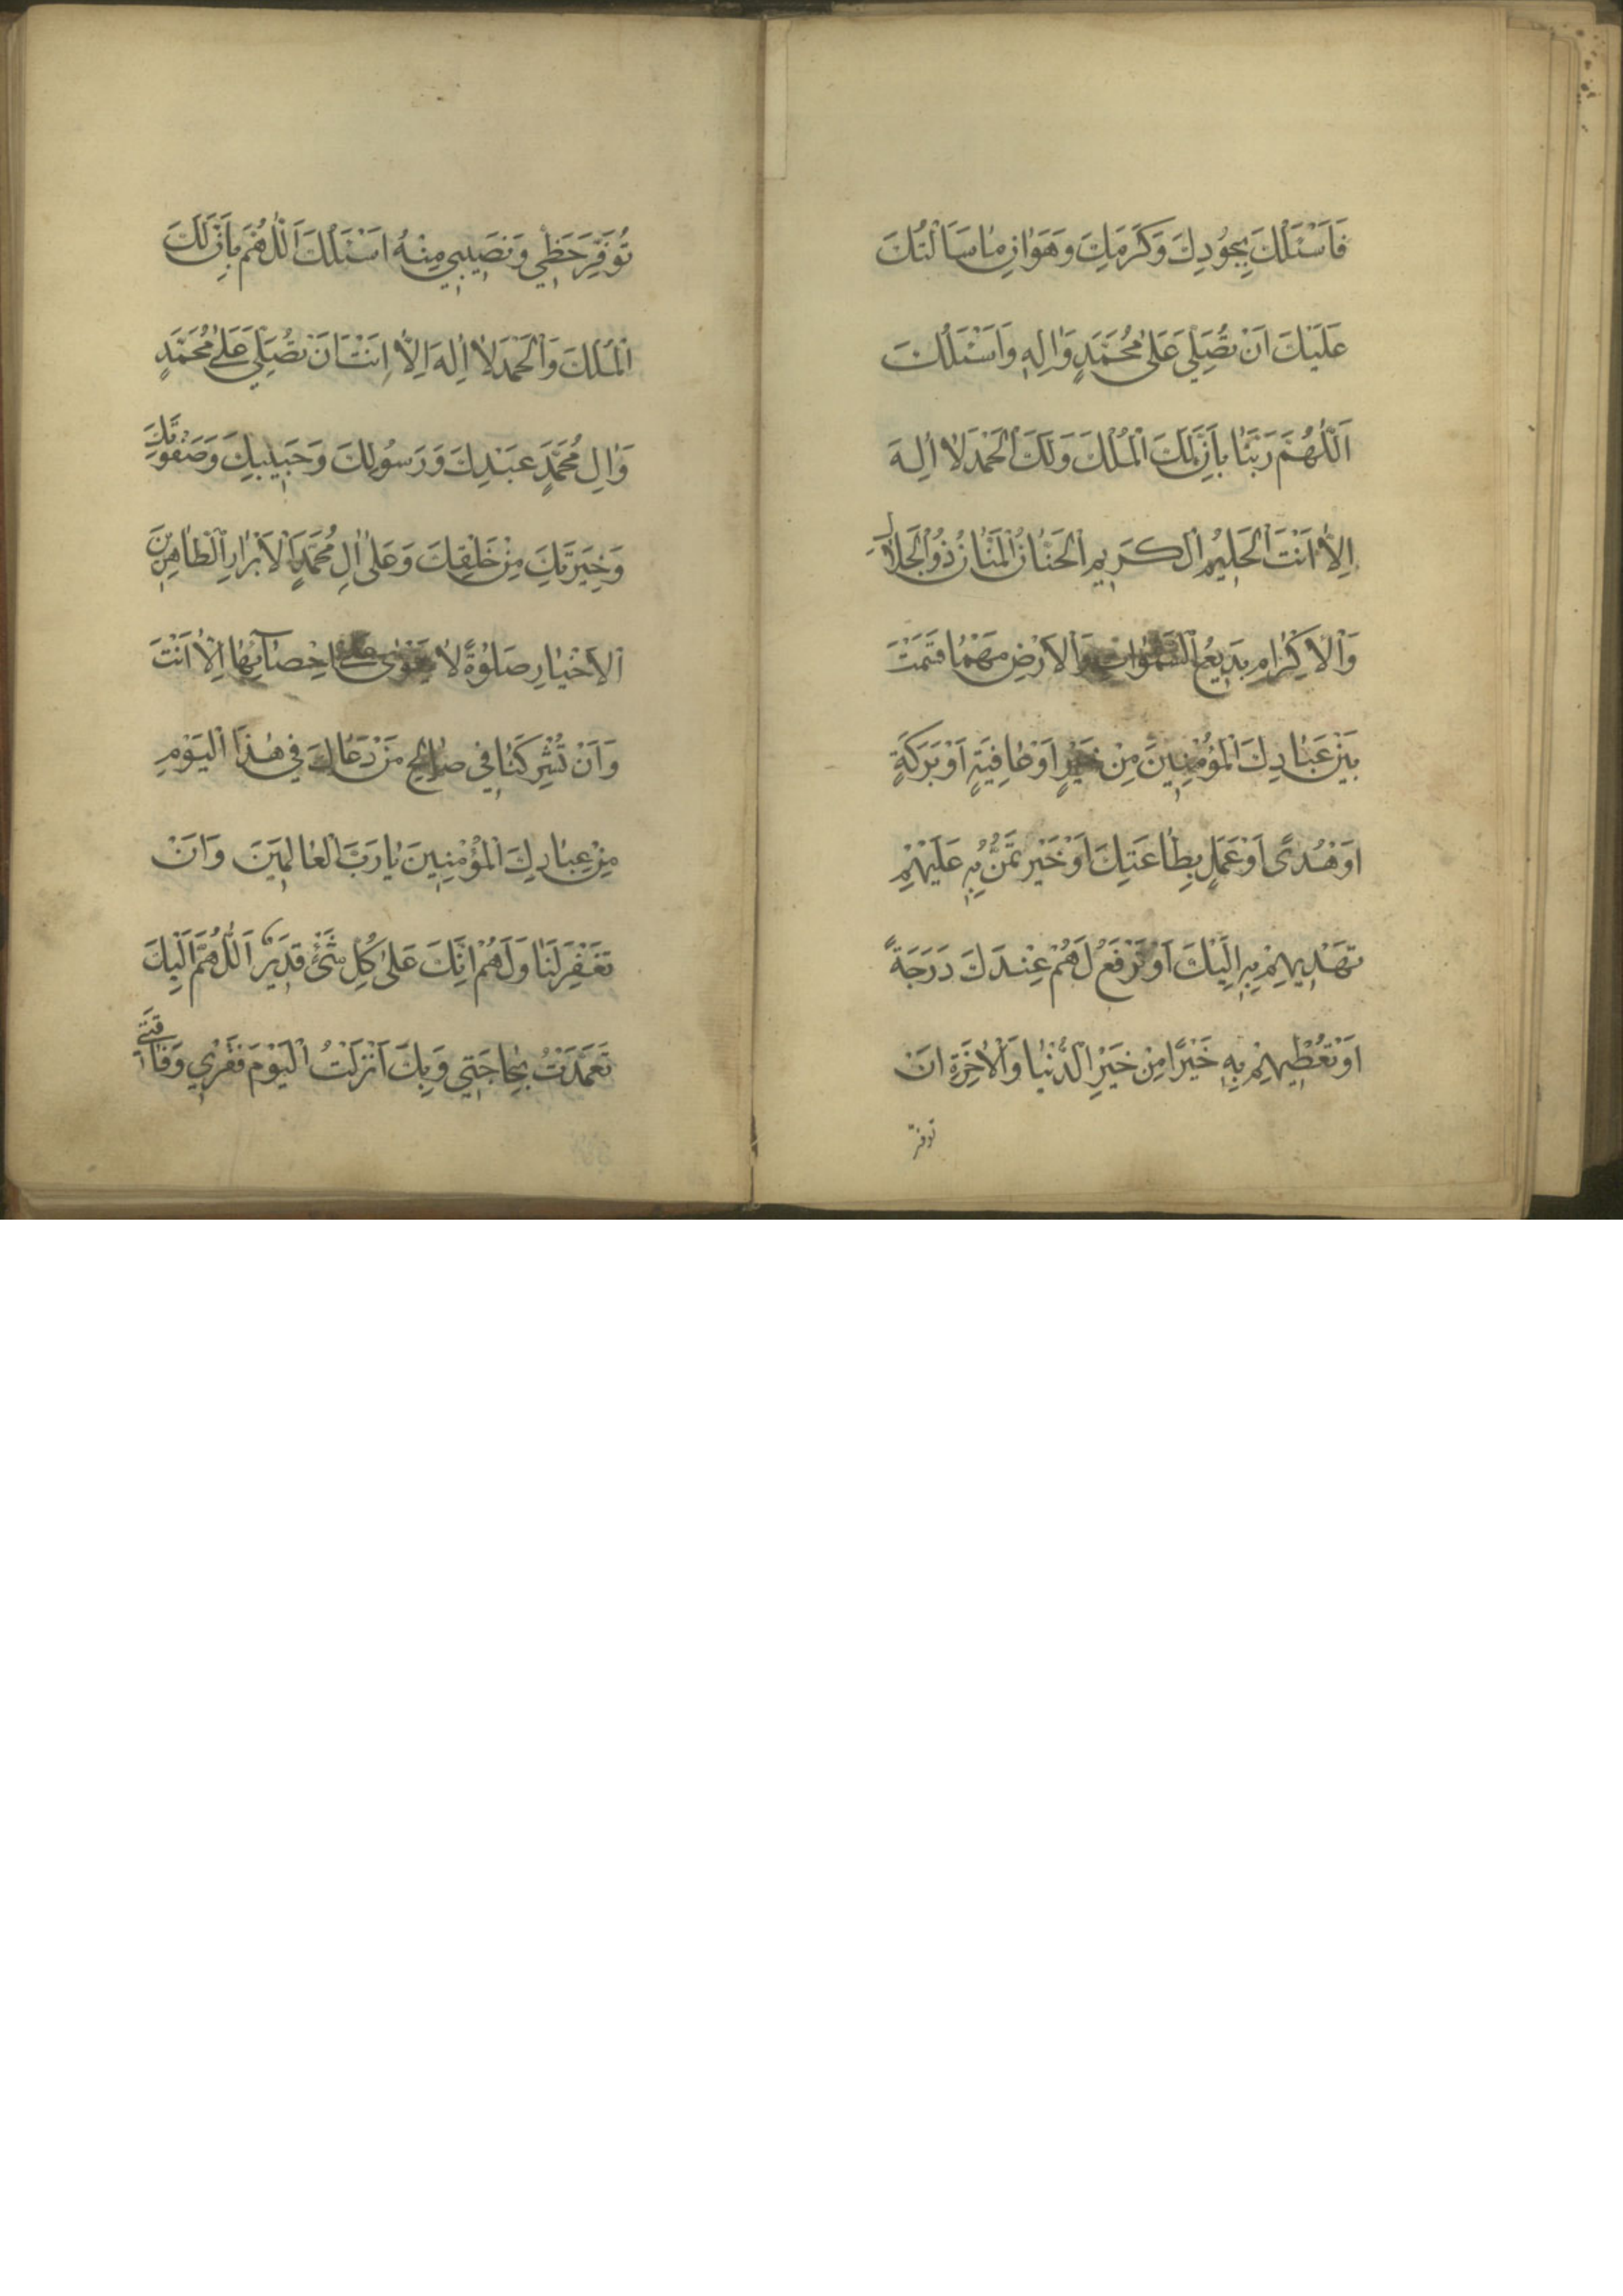 فَاَسْئَلُكَ بِجُودِكَ وَكَرَمِكَ وَهَوٰانِ مٰا سَاَلْتُكَ
عَلَيْكَ اَنْ تُصَلِّيَ عَلىٰ مُحَمَّدٍ وَاٰلِهِ وَاَسْئَلُكَ
اَللّٰهُمَّ رَبَّنٰا بِاَنَّ لَكَ الْمُلْكَ وَلَكَ الْحَمْدَ لاٰ اِلٰهَ
اِلاّٰ اَنْتَ الْحَلِيمُ الْكَرِيمُ الْحَنّٰانُ الْمَنّٰانُ ذُو الْجَلاٰلِ
وَالْاِكْرٰامِ بَدِيعُ السَّمٰوٰاتِ وَالْاَرْضِ مَهْمٰا قَسَمْتَ
بَيْنَ عِبٰادِكَ الْمُؤْمِنِينَ مِنْ خَيْرٍ اَوْ عٰافِيَةٍ اَوْ بَرَكَةٍ
اَوْ هُدىً اَوْ عَمَلٍ بِطٰاعَتِكَ اَوْ خَيْرٍ تَمُنُّ بِهِ عَلَيْهِمْ
تَهْدِيهِمْ بِهِ اِلَيْكَ اَوْ تَرْفَعُ لَهُمْ عِنْدَكَ دَرَجَةً
اَوْ تُعْطِيهِمْ بِهِ خَيْرًا مِنْ خَيْرِ الدُّنْيٰا وَالْاٰخِرَةِ اَنْ
توفر
تُوَفِّرَ حَظِّي وَنَصِيبِي مِنْهُ اَسْئَلُكَ اَللّٰهُمَّ بِاَنَّ لَكَ
الْمُلْكَ وَالْحَمْدَ لاٰ اِلٰهَ اِلاّٰ اَنْتَ اَنْ تُصَلِّيَ عَلىٰ مُحَمَّدٍ
وَاٰلِ مُحَمَّدٍ عَبْدِكَ وَرَسُولِكَ وَحَبِيبِكَ وَصَفْوَتِكَ
وَخِيَرَتِكَ مِنْ خَلْقِكَ وَعَلىٰ اٰلِ مُحَمَّدٍ الْاَبْرٰارِ الطّٰاهِرِينَ
الْاَخْيٰارِ صَلوٰةً لاٰ يَقْوىٰ عَلىٰ اِحْصٰائِهٰا اِلاّٰ اَنْتَ
وَاَنْ تُشْرِكَنٰا فِي صٰالِحِ مَنْ دَعٰاكَ فِي هٰذَا الْيَوْمِ
مِنْ عِبٰادِكَ الْمُؤْمِنِينَ يٰا رَبَّ الْعٰالَمِينَ وَاَنْ
تَغْفِرَ لَنٰا وَلَهُمْ اِنَّكَ عَلىٰ كُلِّ شَيْءٍ قَدِيرٌ اَللّٰهُمَّ اِلَيْكَ
تَعَمَّدْتُ بِحٰاجَتِي وَبِكَ اَنْزَلْتُ الْيَوْمَ فَقْرِي وَفٰاقَتِي